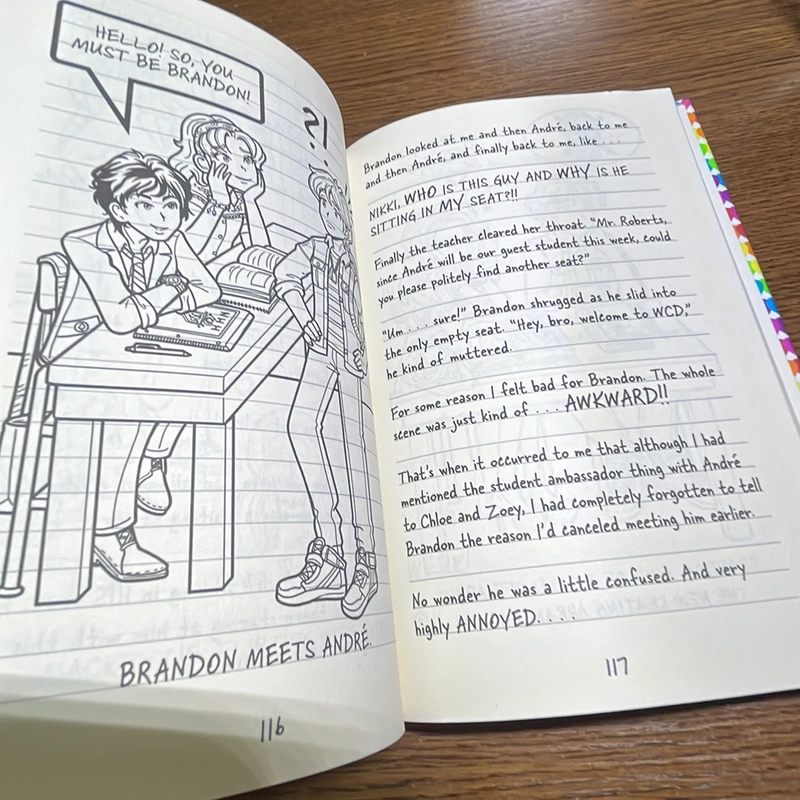 HELLO! SO, YOU
MUST BE BRANDON!
?!
BRANDON MEETS ANDRÉ.
116
Brandon looked at me and then André, back to me
and then André, and finally back to me, like . . .
NIKKI, WHO IS THIS GUY AND WHY IS HE
SITTING IN MY SEAT?!!
Finally the teacher cleared her throat "Mr. Roberts,
since André will be our guest student this week, could
you please politely find another seat?"
"Um . . . sure!" Brandon shrugged as he slid into
the only empty seat. "Hey, bro, welcome to WCD,"
he kind of muttered.
For some reason I felt bad for Brandon. The whole
scene was just kind of . . . AWKWARD!!
That's when it occurred to me that although I had
mentioned the student ambassador thing with André
to Chloe and Zoey, I had completely forgotten to tell
Brandon the reason I'd canceled meeting him earlier.
No wonder he was a little confused. And very
highly ANNOYED. . . .
117